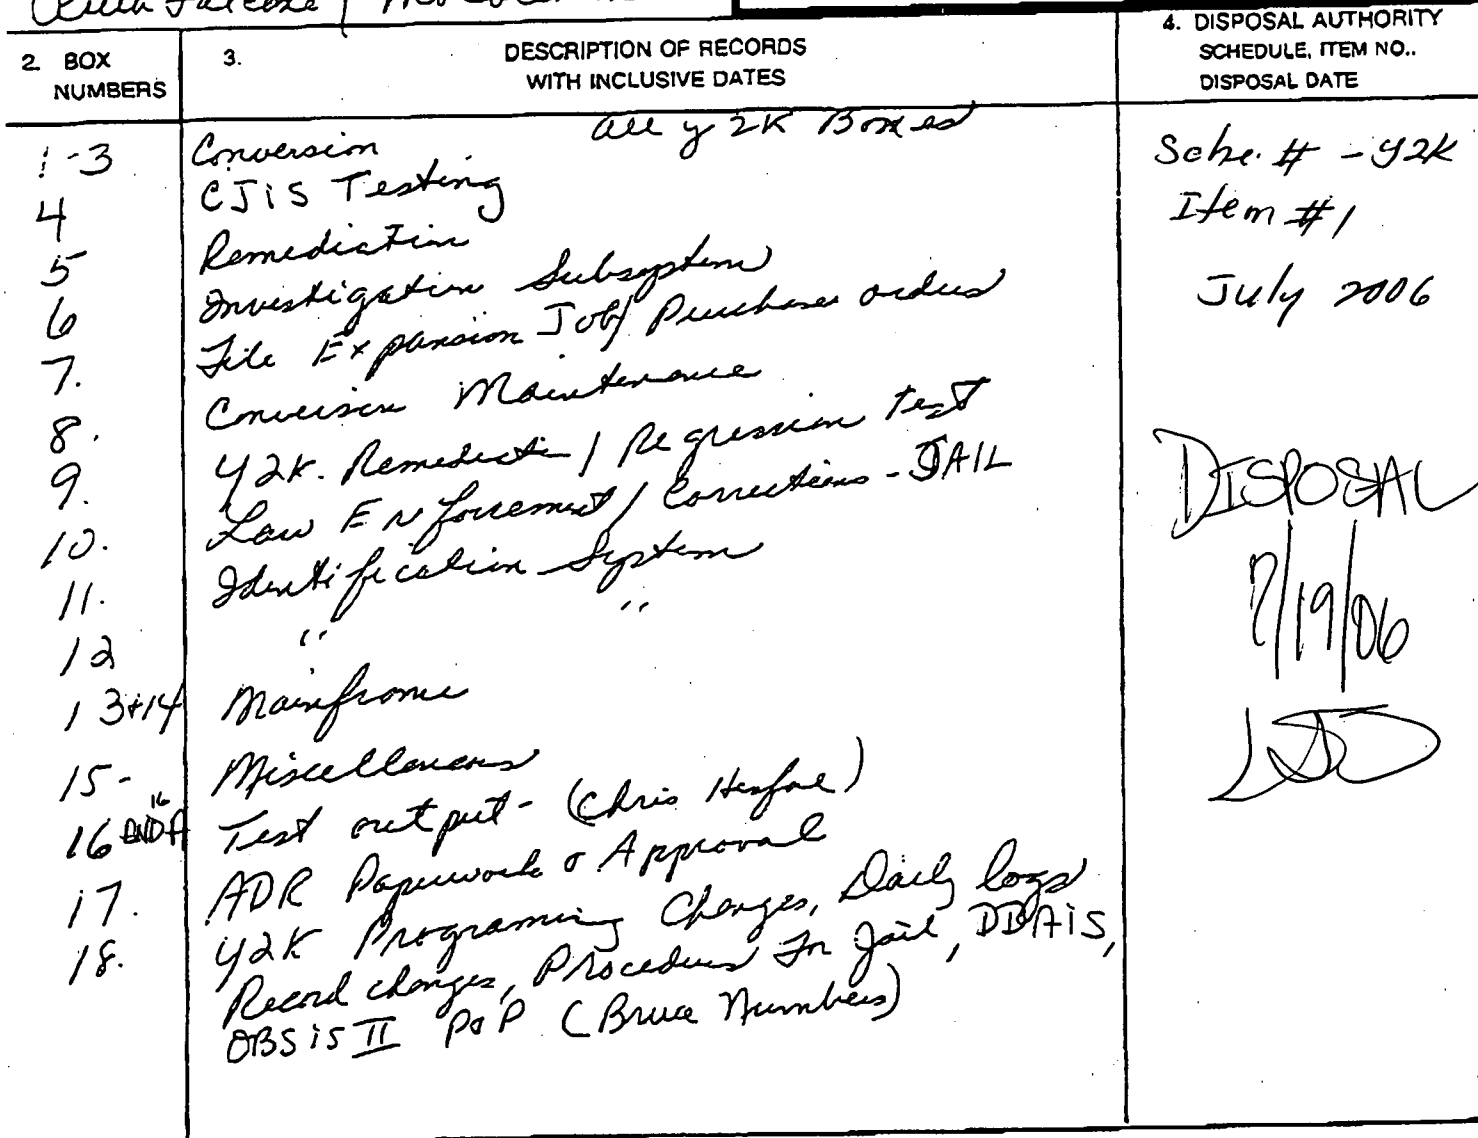 2. BOX NUMBERS
3. DESCRIPTION OF RECORDS WITH INCLUSIVE DATES
4. DISPOSAL AUTHORITY SCHEDULE, ITEM NO.. DISPOSAL DATE
all y2K Boxes
1-3 Conversion
4 CJIS Testing
5 Remediation
6 Investigation Subsystem
7. File Expansion Job/ Purchase orders
8. Conversion Maintenance
9. Y2K. Remediation / Regression Test
10. Law Enforcement / Corrections - JAIL
11. Identification System
12 " "
13+14 Mainframe
15- Miscellaneous
16 AND 16A Test output - (Chris)
17. ADR Paperwork & Approval
18. Y2K Programing Changes, Daily logs
Record changes, Procedures For Jail, DBAIS,
OBSIS II P&P (Bruce Numbers)
Sche. # - Y2K
Item #1
July 2006
DISPOSAL
7/19/06